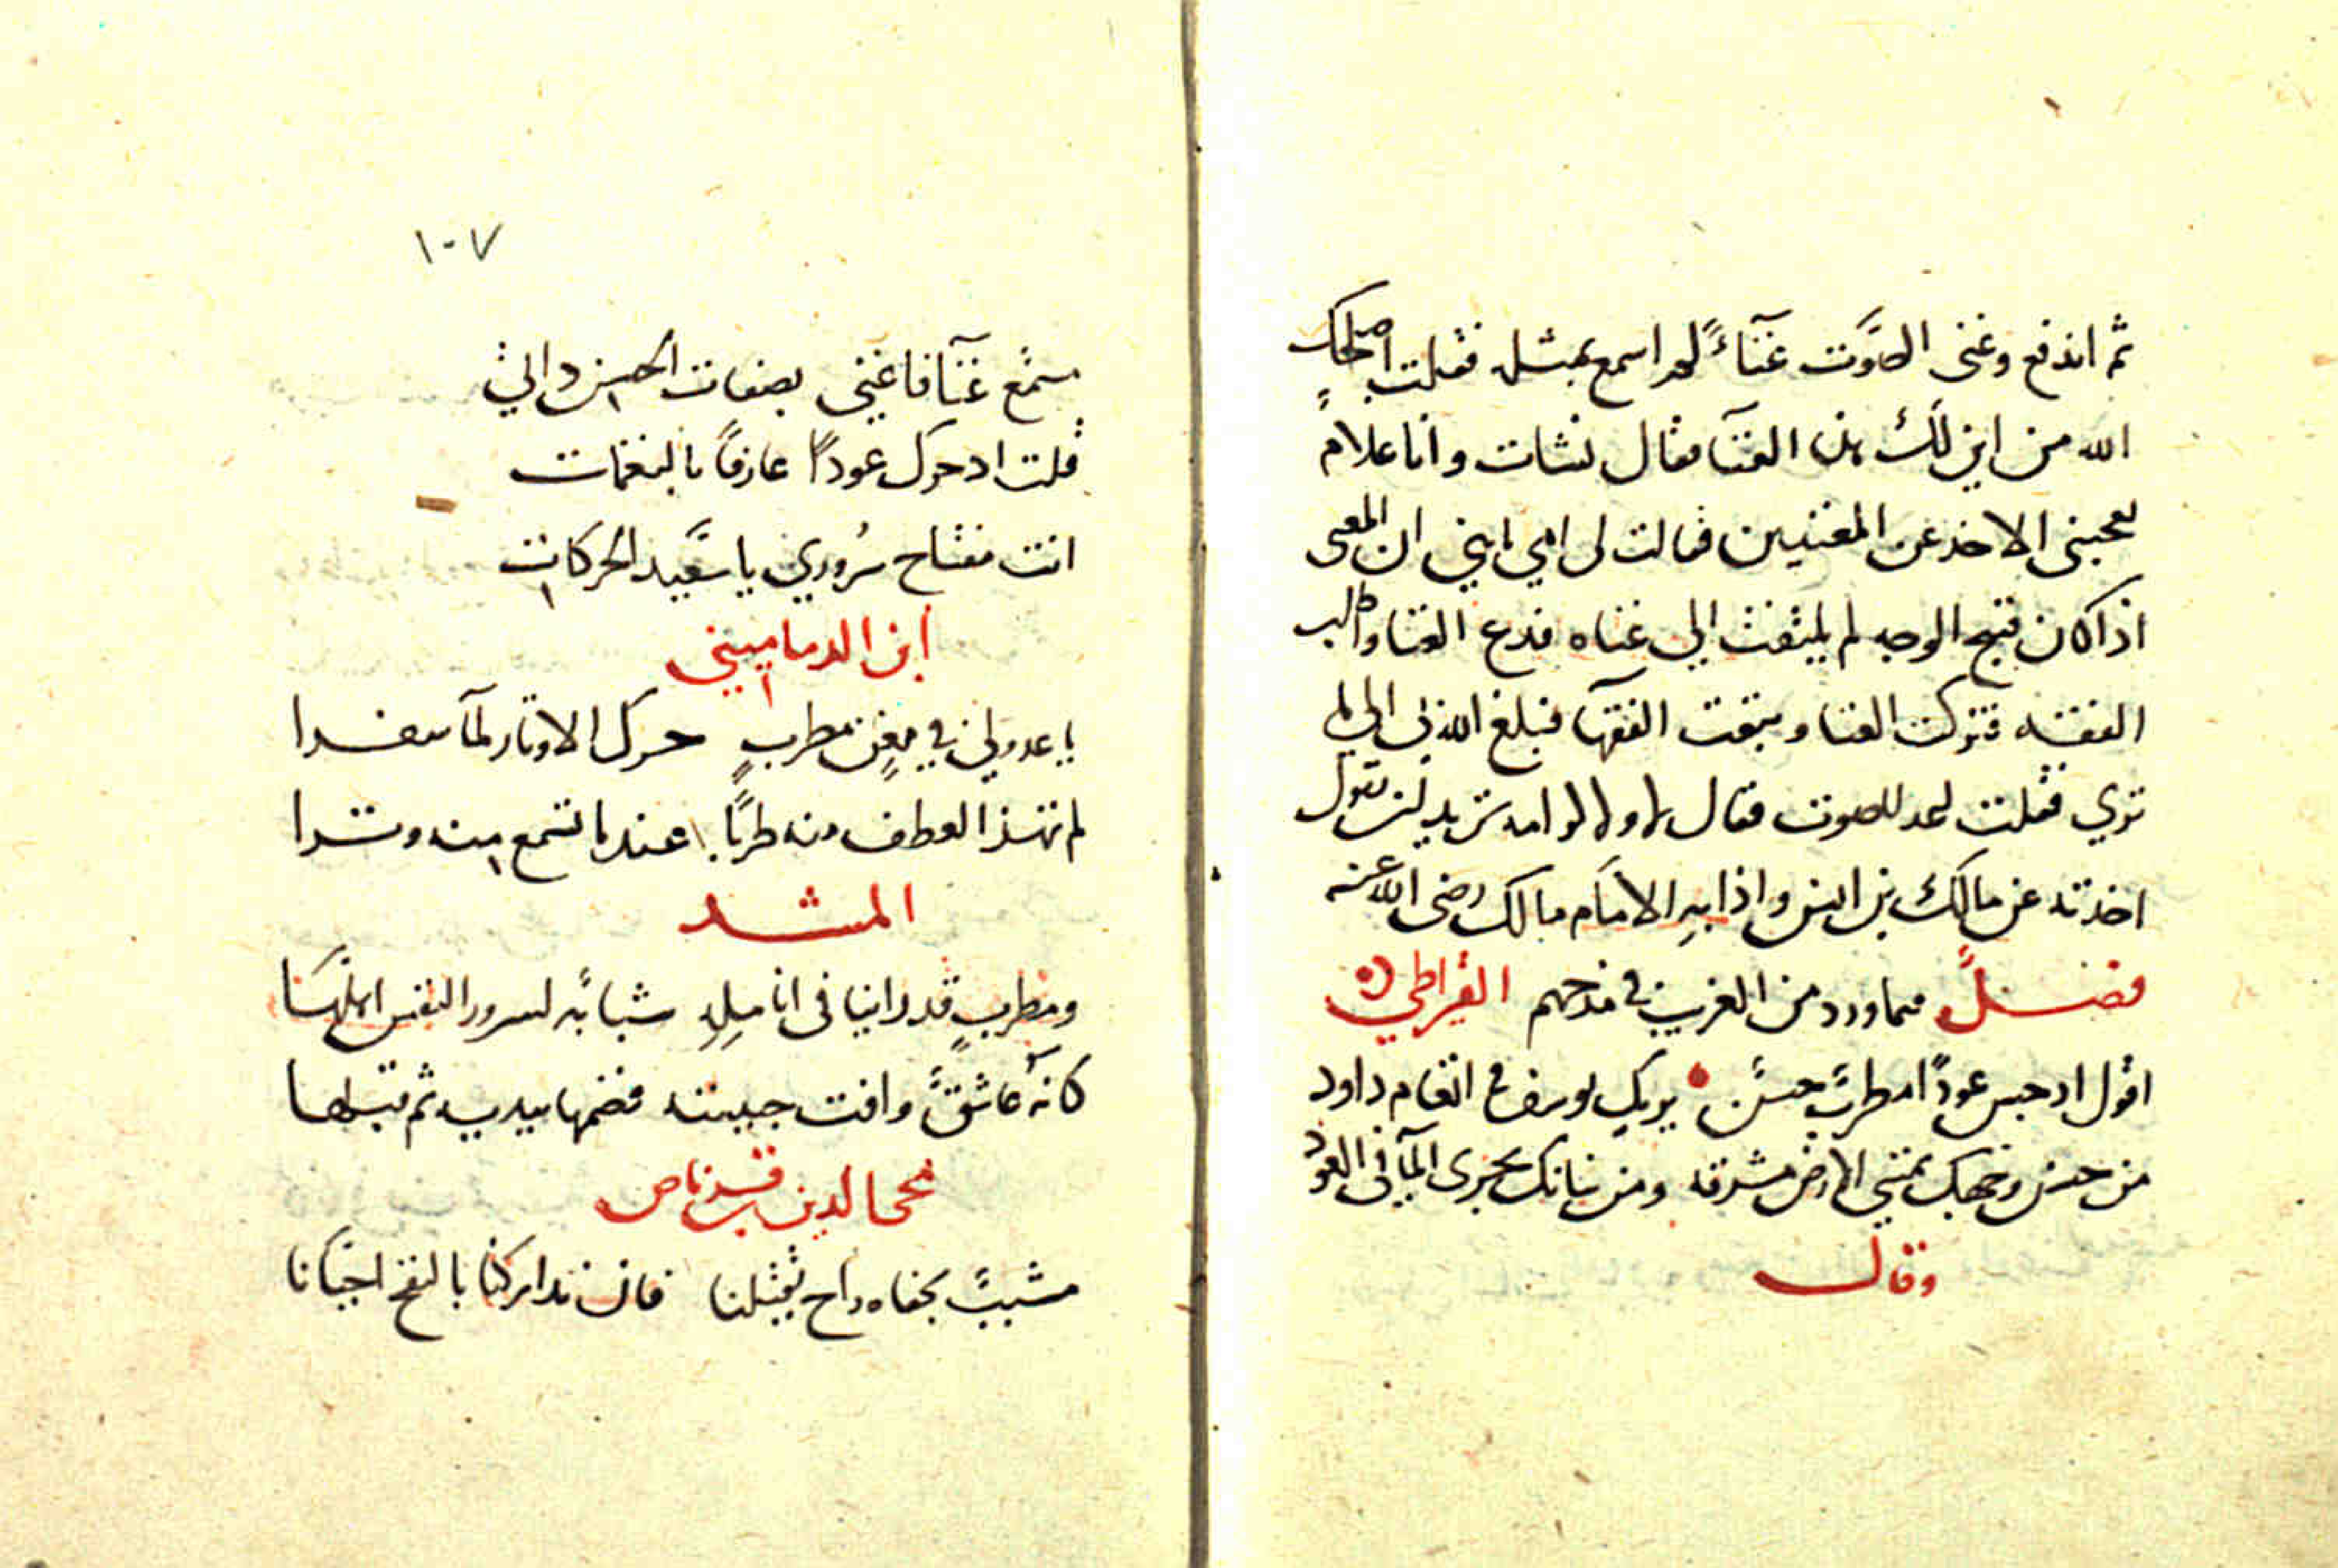 ثم اندفع وغنى الصَّوت غنآءً لم اسمع بمثله فقلت اصلحك
الله من اين لك هذا الغنآ فقال نشات وانا غلام
يعجبنى الاخذ عن المغنيين فقالت لى امي يابني ان المغنى
اذا كان قبيح الوجه لم يلتفت الي غناه فدع الغنا واطلب
الفقه فتركت الغنا وتبعت الفقهآ فبلغ الله بي الي ما
تري فقلت اعد الصوت فقال لا ولا كرامه تريد ان تقول
اخذته عن مالك بن انس واذا به الامام مالك رضى الله عنه
فصــلٌ فيما ورد من الغريب في مدحهم القيراطي
اقول اذ جس عودًا مطربٌ حسنٌ يريك يوسف في انغام داود
من حسن وجهك تمسي الارض مشرقه ومن بنانك يجرى المآ فى العود
وقال
١٠٧
غنآ فاغنى بصفات الحسن
قلت اذ حرك عودًا عارفًا بالنغمات
انت مفتاح سُروري يا سعَيد الحركات
ابن الدماميني
يا عذولي في مغنٍ مطربٍ حرك الاوتار لمآ سفرا
لم تهز العطف منه طربًا عندما تسمع منه وترا
المشد
ومطربٍ قد راينا فى انامله شبابه لسرور النفس اهلها
كانه عاشقٌ وافت حبيبته فضمها بيديه ثم قبلها
محى الدين قرناص
مشببٌ بجفاه راح يقتلنا فان تداركنا بالنفخ احيانا